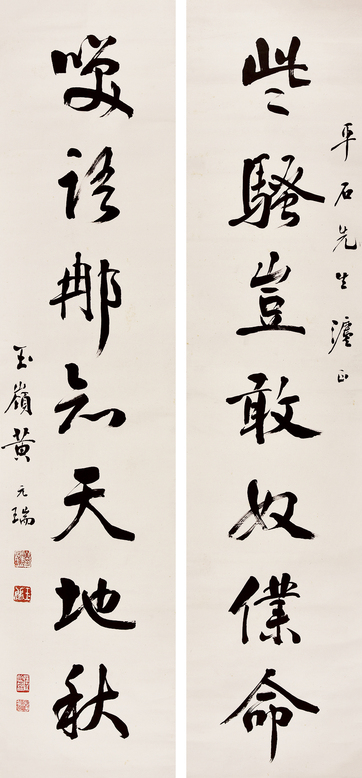 平石先生灋正
些騷豈敢奴僕命
咲語那知天地秋
玉嶺黃元瑞